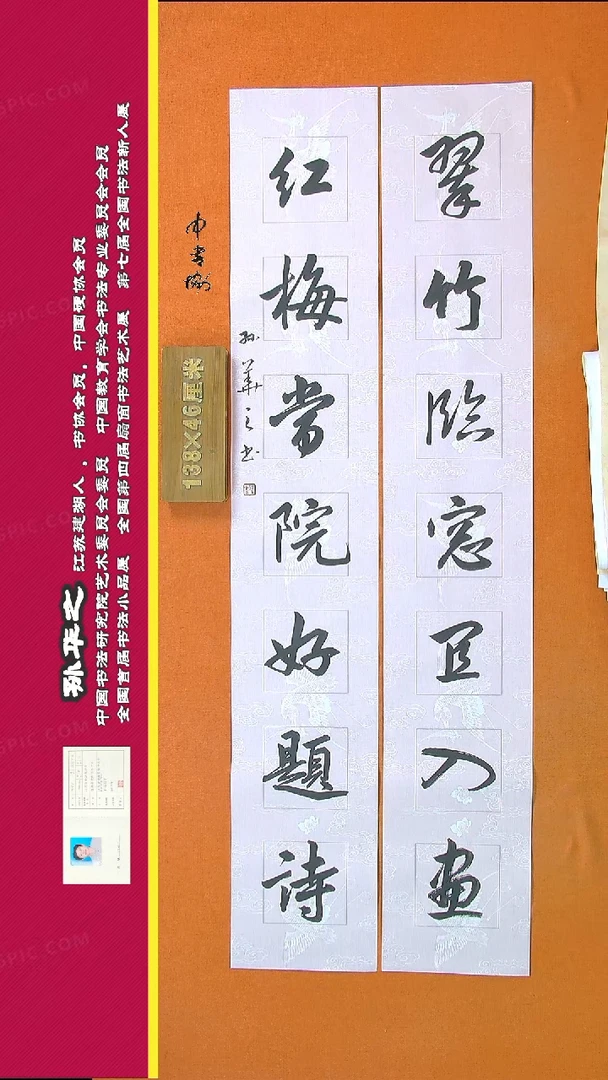 翠竹臨窓宜入畫
紅梅當院好題詩
孙華之书
138×46厘米
孙华之 江苏建湖人，书协会员，中国硬协会员
中国书法研究院艺术委员会委员 中国教育学会书法专业委员会会员
全国首届书法小品展 全国第四届扇面书法艺术展 第七届全国书法新人展